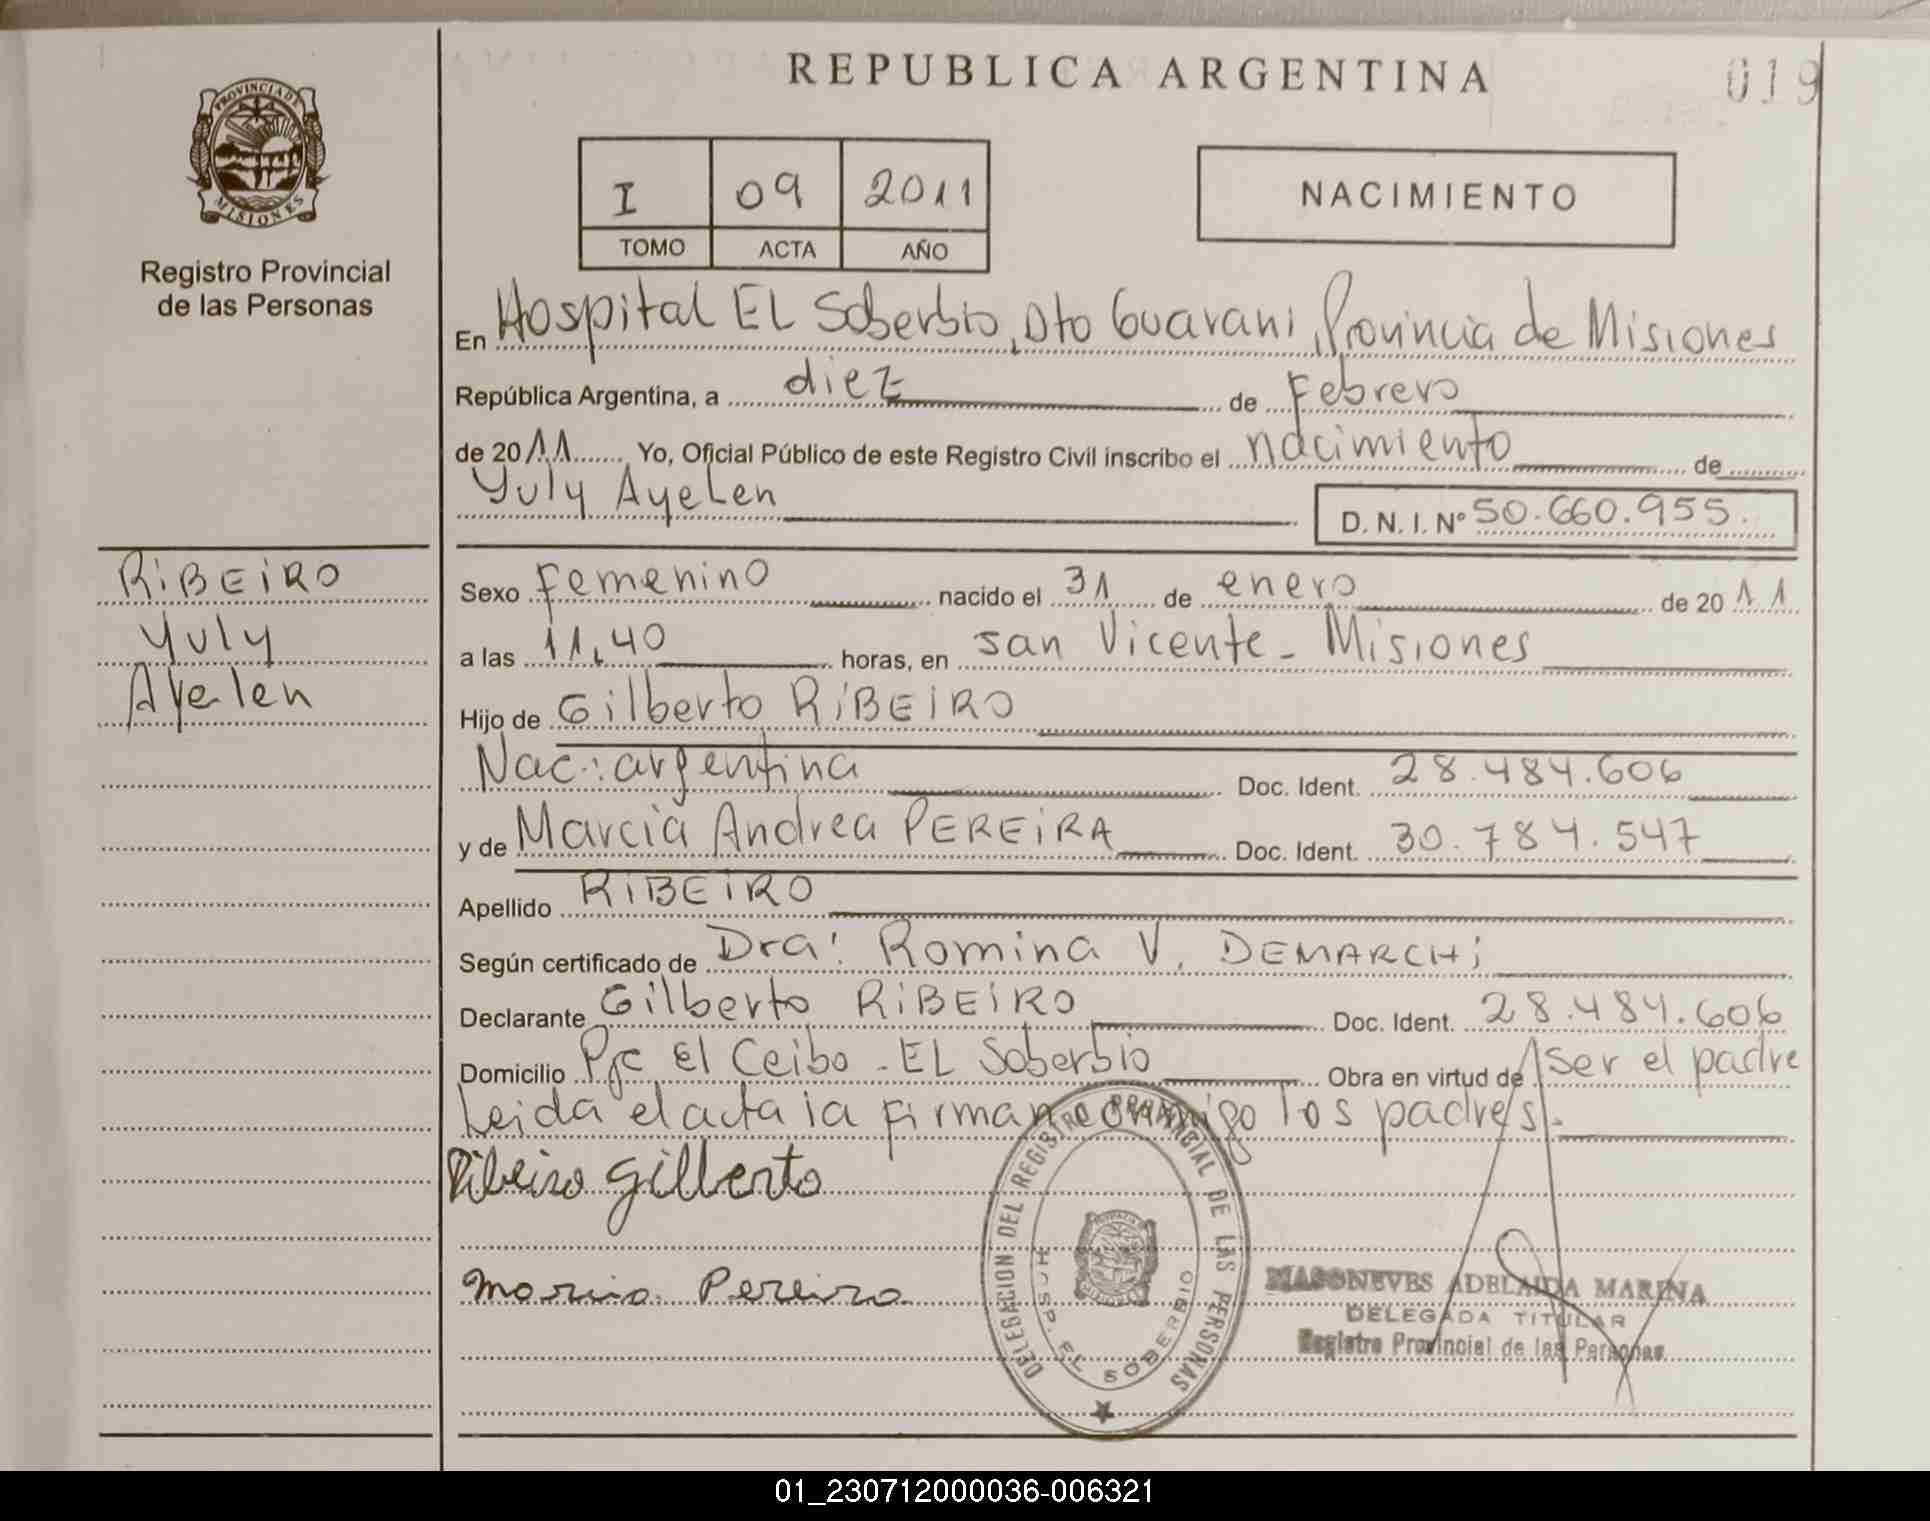 REPUBLICA ARGENTINA
019
PROVINCIA DE
MISIONES
Registro Provincial
de las Personas
I 09 2011
TOMO ACTA AÑO
NACIMIENTO
En Hospital EL Soberbio, Dto Guarani, Provincia de Misiones
República Argentina, a diez de Febrero
de 2011 Yo, Oficial Público de este Registro Civil inscribo el nacimiento de
Yuly Ayelen
D. N. I. Nº 50.660.955.
RiBEiRO
Yuly
Ayelen
Sexo Femenino nacido el 31 de enero de 2011
a las 11,40 horas, en san Vicente - Misiones
Hijo de Gilberto RiBEIRO
Nac.: argentina Doc. Ident. 28.484.606
y de Marcia Andrea PEREiRA Doc. Ident. 30.784.547
Apellido RiBEiRO
Según certificado de Dra: Romina V. DEMARCHi
Declarante Gilberto RiBEiRO Doc. Ident. 28.484.606
Domicilio Pje El Ceibo - EL Soberbio Obra en virtud de Ser el padre
Leida el acta la firman conmigo los padres.
Ribeiro Gilberto
Marcia Pereira
DELEGACION DEL REGISTRO PROVINCIAL DE LAS PERSONAS
HOSP. EL SOBERBIO
MASONEVES ADELAIDA MARINA
DELEGADA TITULAR
Registro Provincial de las Personas
01_230712000036-006321